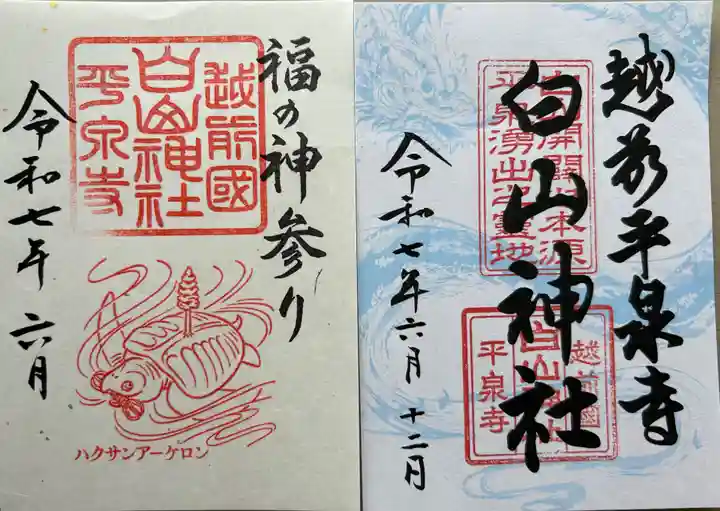 福の神参り
越前國
白山神社
平泉寺
令和七年 六月
ハクサンアーケロン
越前平泉寺
白山神社
平泉湧出之靈地
越前國
白山神社
平泉寺
令和七年六月十二日